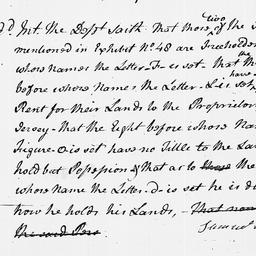 d.° Int. The Dep.t Saith - That those two of the
mentioned in Exhibit N.o 48 are Freeholders
whose names the Letter - F - is set - That the
before whose Names the Letter - L is set have
Rent for their Lands to the Proprietor
Jersey - That the Eight before whose Nam
figure - o is set have no Title to the La
hold but Possession & that as to those the
whose name the Letter - d - is set he is d
how he holds his Lands, - That non
the said Pers
Samuel